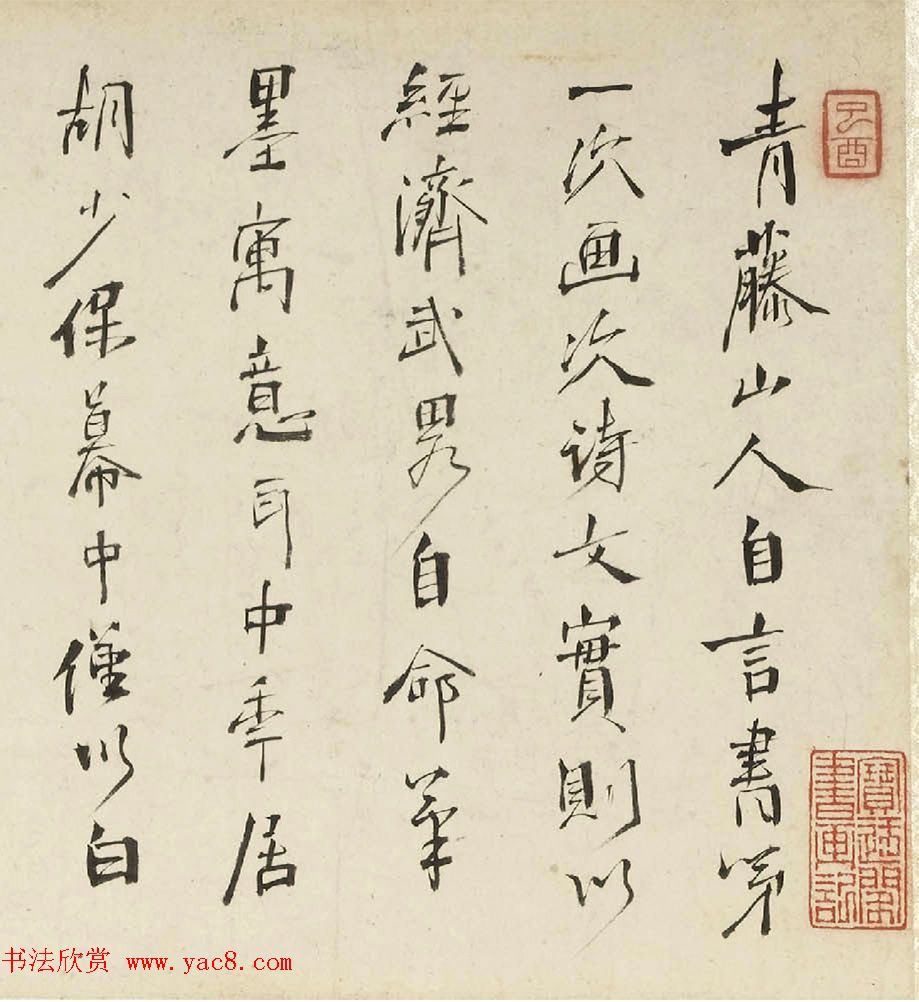 青藤山人自言書第
一次画次詩文實則以
經濟武畧自命筆
墨寓意耳中年居
胡少保幕中僅以白
己酉
寶迂閣書畫記
书法欣赏 www.yac8.com